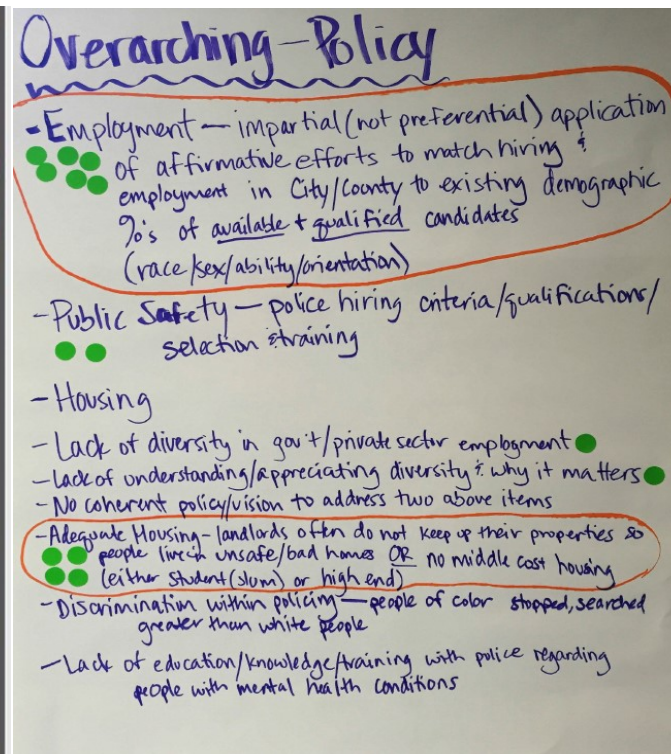 Overarching-Policy
-Employment - impartial (not preferential) application
of affirmative efforts to match hiring &
employment in City/County to existing demographic
%'s of available + qualified candidates
(race/sex/ability/orientation)
-Public Safety - police hiring criteria/qualifications/
selection & training
-Housing
-Lack of diversity in gov't/private sector employment
-Lack of understanding/appreciating diversity & why it matters
-No coherent policy/vision to address two above items
-Adequate Housing - landlords often do not keep up their properties so
people live in unsafe/bad homes OR no middle cost housing
(either student (slum) or high end)
-Discrimination within policing - people of color stopped, searched
greater than white people
-Lack of education/knowledge/training with police regarding
people with mental health conditions